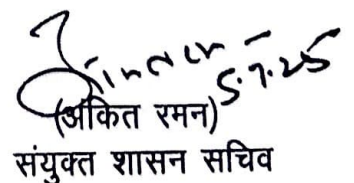 5.7.25
(अंकित रमन)
संयुक्त शासन सचिव